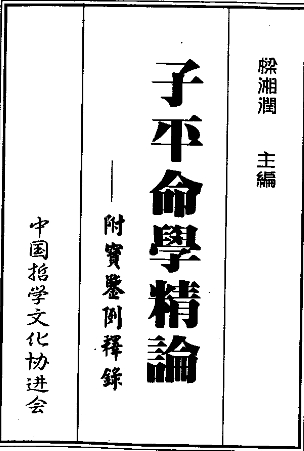 梁湘潤 主編
子平命學精論
——附寶鑒例釋錄
中国哲学文化协进会